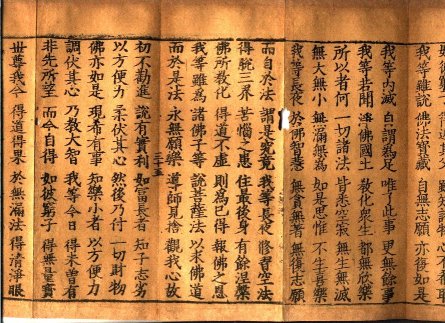 我等雖說佛法寶藏自無志願亦復如是
我等內滅自謂為足唯了此事更無餘事
我等若聞淨佛國土教化眾生都無欣樂
所以者何一切諸法皆悉空寂無生無滅
無大無小無漏無為如是思惟不生喜樂
我等長夜於佛智慧無貪無著無復志願
而自於法謂是究竟我等長夜修習空法
得脫三界苦惱之患住最後身有餘涅槃
佛所教化得道不虛則為已得報佛之恩
我等雖為諸佛子等說菩薩法以求佛道
而於是法永無願樂導師見捨觀我心故
初不勸進說有實利如富長者知子志劣
以方便力柔伏其心然後乃付一切財物
佛亦如是現希有事知樂小者以方便力
調伏其心乃教大智我等今日得未曾有
非先所望而今自得如彼窮子得無量寶
世尊我今得道得果於無漏法得清淨眼